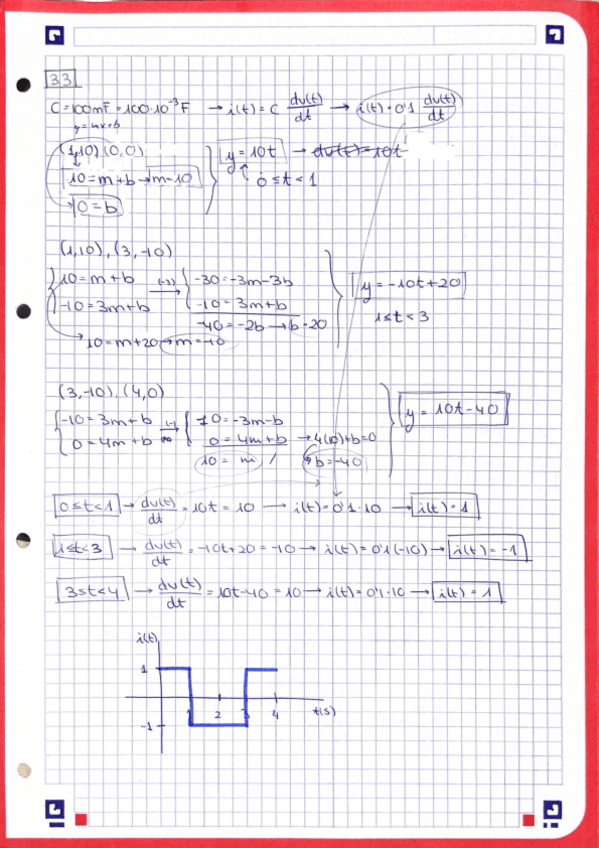 33
C = 100mF = 100·10⁻³F → i(t) = C dv(t)/dt → i(t) = 0'1 dv(t)/dt
y = mx+b
(1,10), (0,0)
10 = m+b → m=10
0 = b
y = 10t → dv(t) = 10t
0 ≤ t < 1
(1,10), (3,-10)
10 = m+b (-3)→ -30 = -3m-3b
-10 = 3m+b -10 = 3m+b
-40 = -2b → b=20
10 = m+20 → m = -10
y = -10t+20
1 ≤ t < 3
(3,-10), (4,0)
-10 = 3m+b (-1)→ 10 = -3m-b
0 = 4m+b 0 = 4m+b → 4(10)+b=0
10 = m / b = -40
y = 10t-40
0 ≤ t < 1 → dv(t)/dt = 10t = 10 → i(t) = 0'1·10 → i(t) = 1
1 ≤ t < 3 → dv(t)/dt = -10t+20 = -10 → i(t) = 0'1(-10) → i(t) = -1
3 ≤ t < 4 → dv(t)/dt = 10t-40 = 10 → i(t) = 0'1·10 → i(t) = 1
i(t)
1
1 2 3 4 t(s)
-1